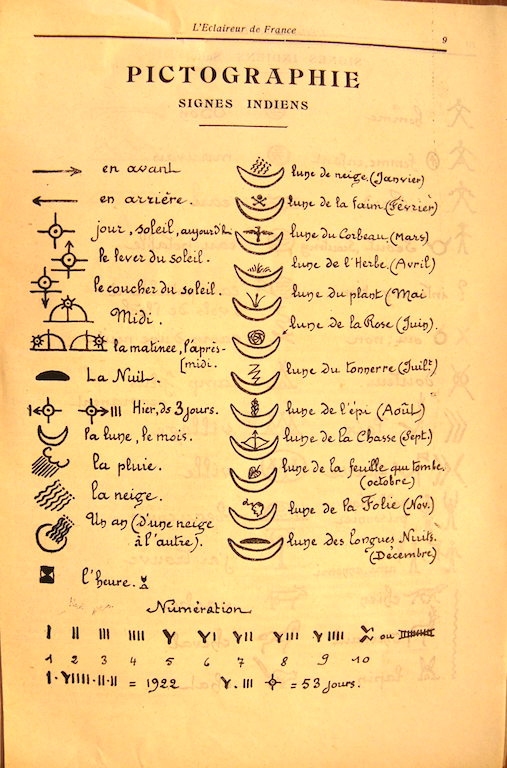 L'Eclaireur de France
9
PICTOGRAPHIE
SIGNES INDIENS
en avant
en arrière.
jour, soleil, aujourd'h
le lever du soleil.
le coucher du soleil.
Midi.
la matinee, l'après-
midi.
La Nuit.
Hier, ds 3 jours.
la lune, le mois.
la pluie.
la neige.
Un an (d'une neige
à l'autre).
l'heure.
lune de neige. (Janvier)
lune de la faim. (Février)
lune du Corbeau. (Mars)
lune de l'Herbe. (Avril)
lune du plant (Mai
lune de la Rose (Juin).
lune du tonnerre (Juilt)
lune de l'épi (Août)
lune de la Chasse (Sept.)
lune de la feuille qui tombe.
(octobre)
lune de la Folie (Nov.)
lune des longues Nuits.
(Décembre)
Numération
ou
1 2 3 4 5 6 7 8 9 10
= 1922
= 53 jours.